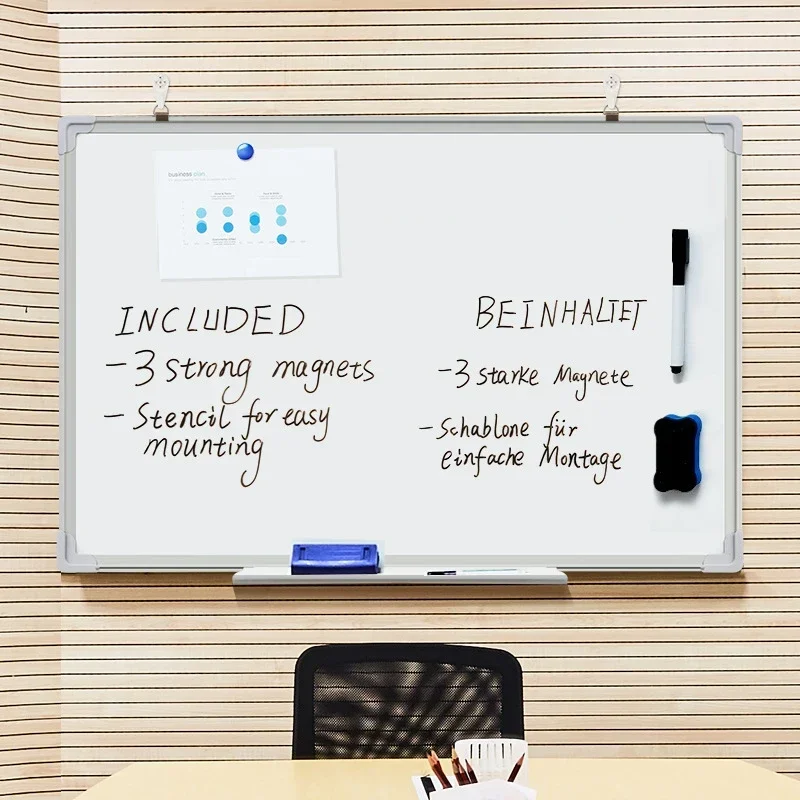 business plan
INCLUDED
- 3 strong magnets
- Stencil for easy
mounting
BEINHALTET
- 3 starke Magnete
- Schablone für
einfache Montage